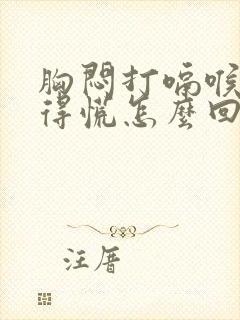 胸悶打嗝喉
得慌怎麼回
注厝